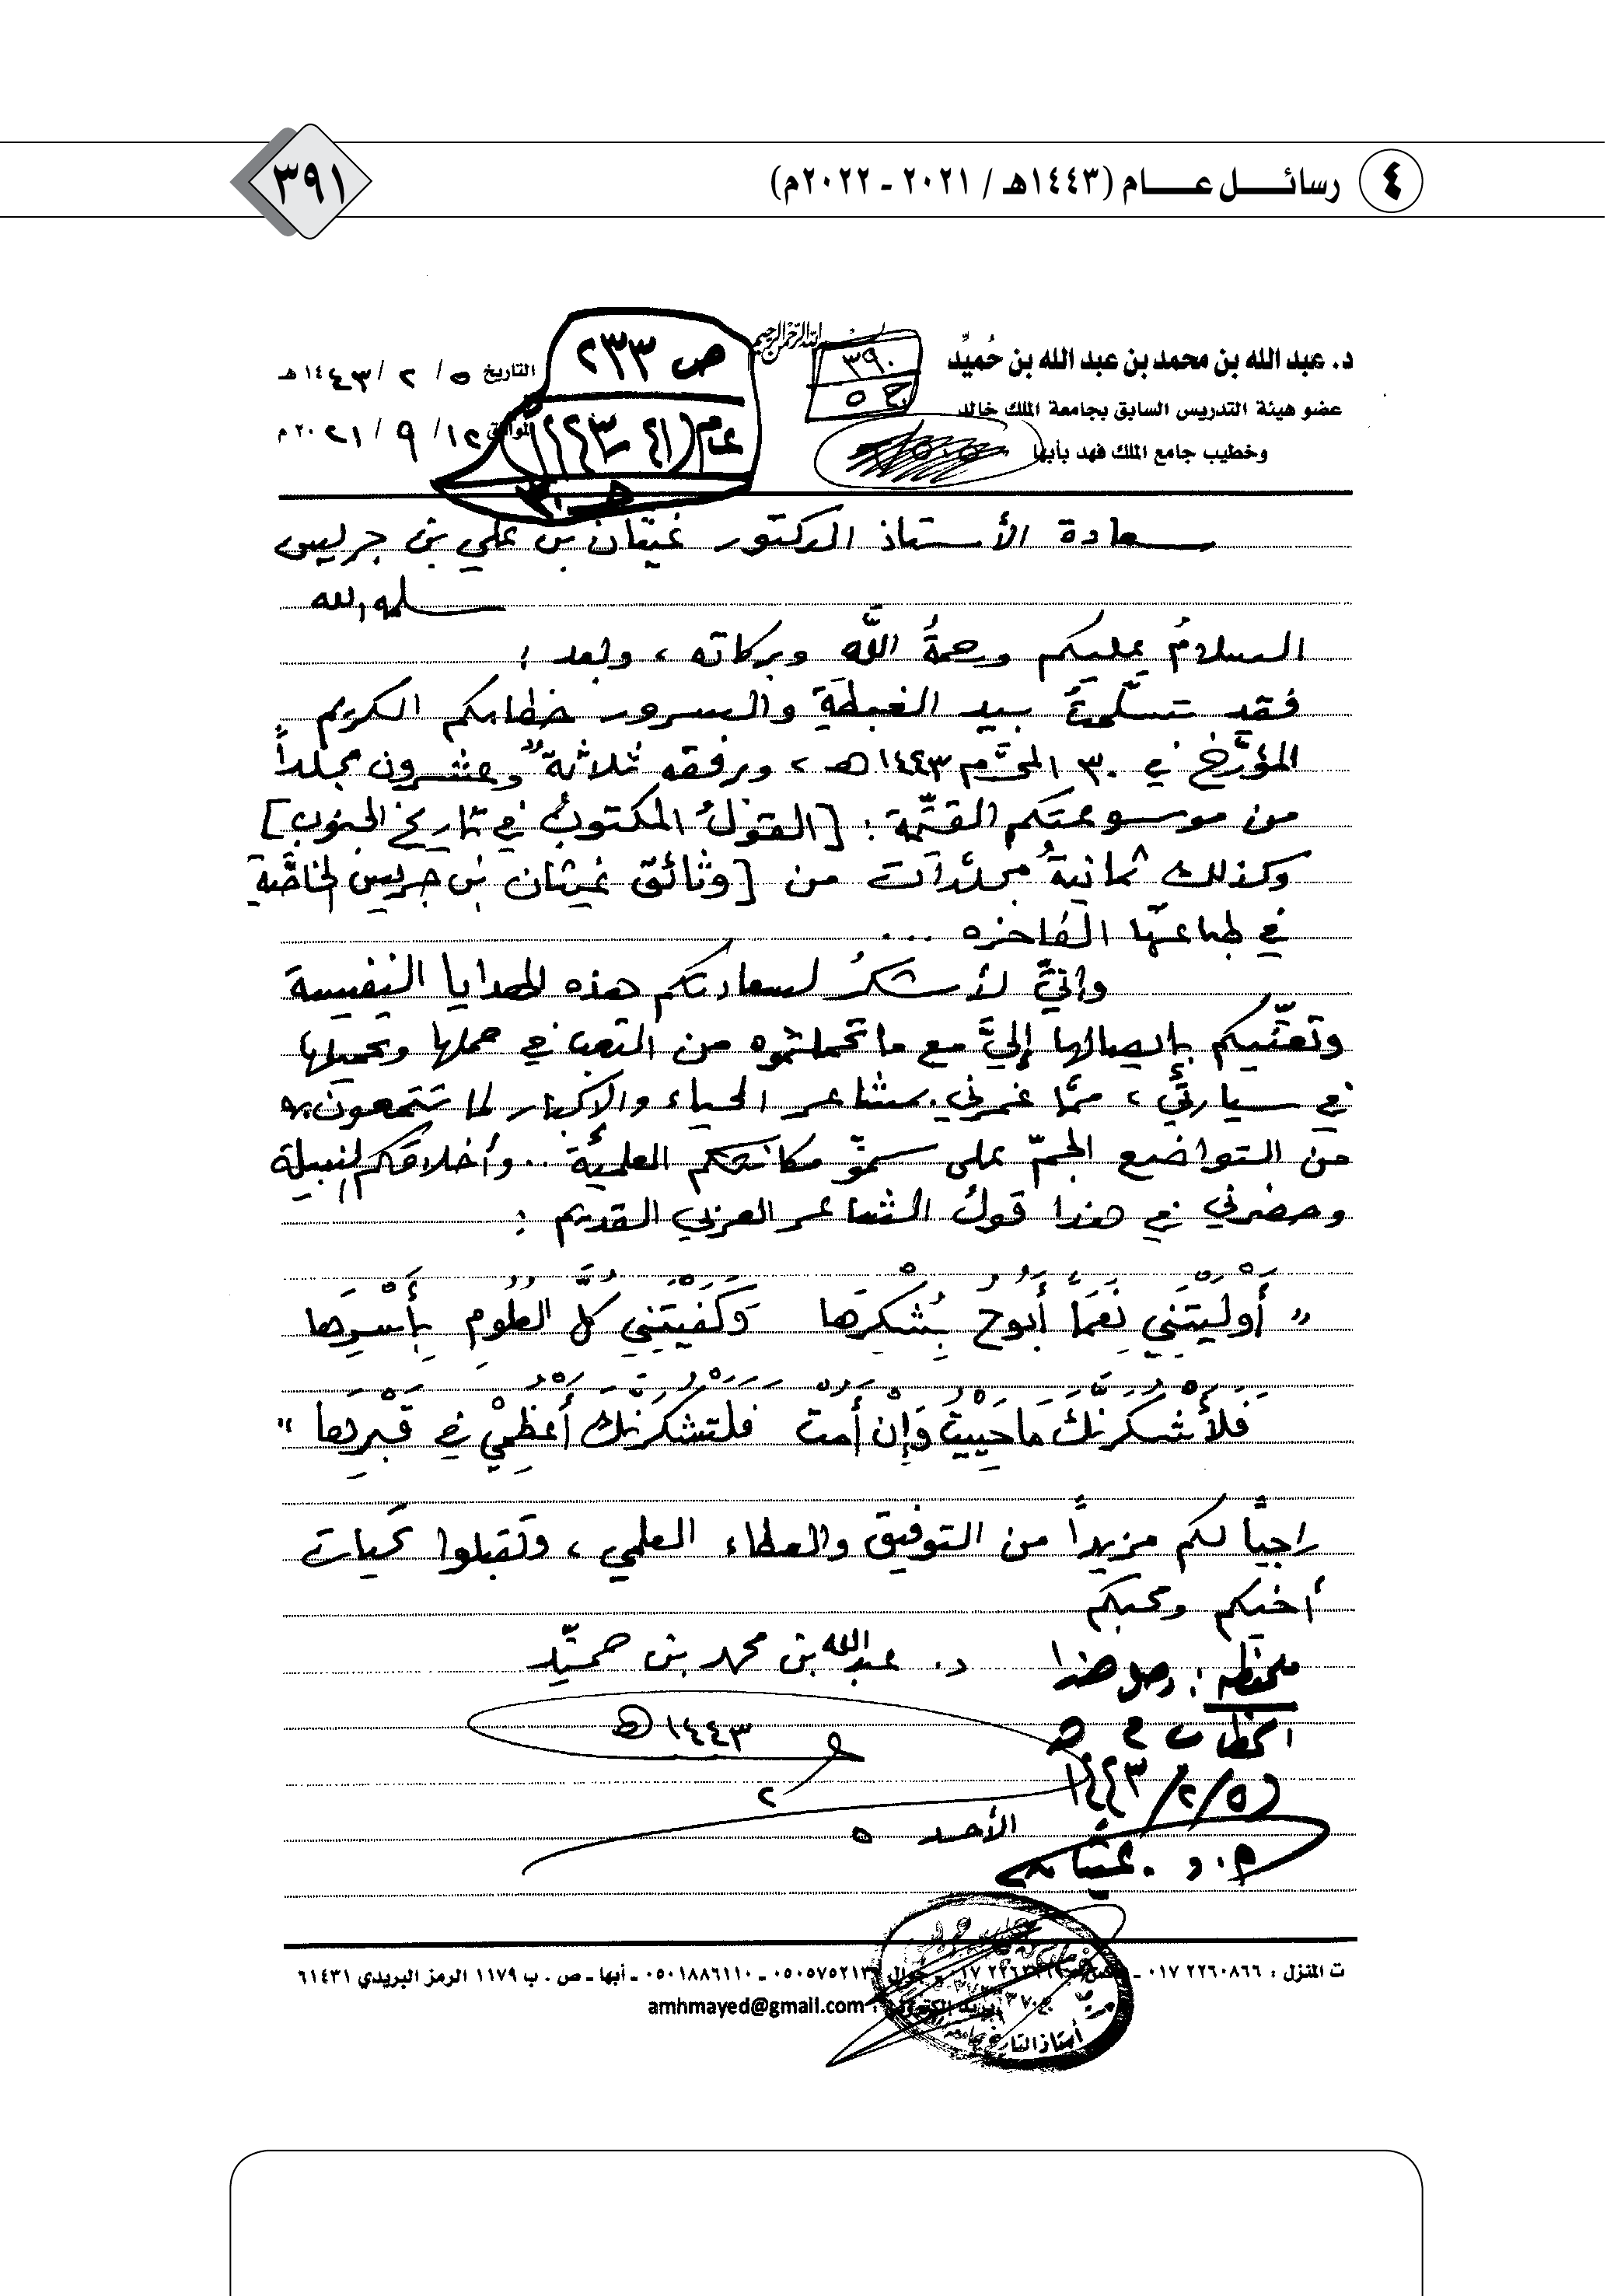 ٤ رسائل عام (١٤٤٣هـ / ٢٠٢١ - ٢٠٢٢م)
٣٩١
د. عبد الله بن محمد بن عبد الله بن حُميِّد
عضو هيئة التدريس السابق بجامعة الملك خالد
وخطيب جامع الملك فهد بأبها
٣٩٠
ج ٥
ص ٢٣٣
التاريخ ٥ / ٢ / ١٤٤٣هـ
الموافق ١٢ / ٩ / ٢٠٢١م
سعادة الأستاذ الدكتور غيثان بن علي بن جريس
سلمه الله
السلامُ عليكم ورحمةُ اللَّه وبركاته ، وبعد :
فقد تسلَّمتُ بيد الغبطةِ والسرور خطابكم الكريم
المؤرَّخ في ٣٠ المحرَّم ١٤٤٣هـ ، وبرفقه ثلاثة وعشرون مجلداً
من موسوعتكم القيِّمة : [القولُ المكتوبُ في تاريخ الجنوب]
وكذلك ثمانيةُ مجلَّدات من [وثائق غيثان بن جريس الخاصَّة
في طباعتها الفاخره ...
وإنِّي لأشكرُ لسعادتكم هذه الهدايا النفيسة
وتعنّيكم بإيصالها إليَّ مع ما تحملتموه من التعب في حملها وتحميلها
في سيارتي ، ممَّا غمرني بمشاعر الحياء والإكبار لما تتمتعون به
من التواضع الجمّ على سموّ مكانتكم العلميَّة .. وأخلاقكم النبيلة
وحضرني في هذا قولُ الشاعر العربي القديم :
" أَوْلَيْتَنِي نِعَماً أَبُوحُ بِشُكْرِهَا وَكَفَيْتَنِي كُلَّ الأُمُورِ بِأَسْرِهَا
فَلَأَشْكُرَنَّكَ مَا حَيِيْتُ وَإِنْ أَمُتْ فَلَتَشْكُرَنَّكَ أَعْظُمِي فِي قَبْرِهَا "
راجياً لكم مزيداً من التوفيق والعطاء العلمي ، وتقبلوا تحيات
أخيكم ومحبكم
د. عبدالله بن محمد بن حميِّد
١٤٤٣هـ
٢
الأحد ٥
ملحوظه : وصل هذا
الخطاب في
٥/٢/١٤٤٣
أ. د. غيثان
ت المنزل : ٢٢٦٠٨٦٦ ٠١٧ ـ ٠٥٠٥٧٥٢١٣٦ ـ ٠٥٠١٨٨٦١١٠ ـ أبها ـ ص . ب ١١٧٩ الرمز البريدي ٦١٤٣١
amhmayed@gmail.com
أستاذ التاريخ